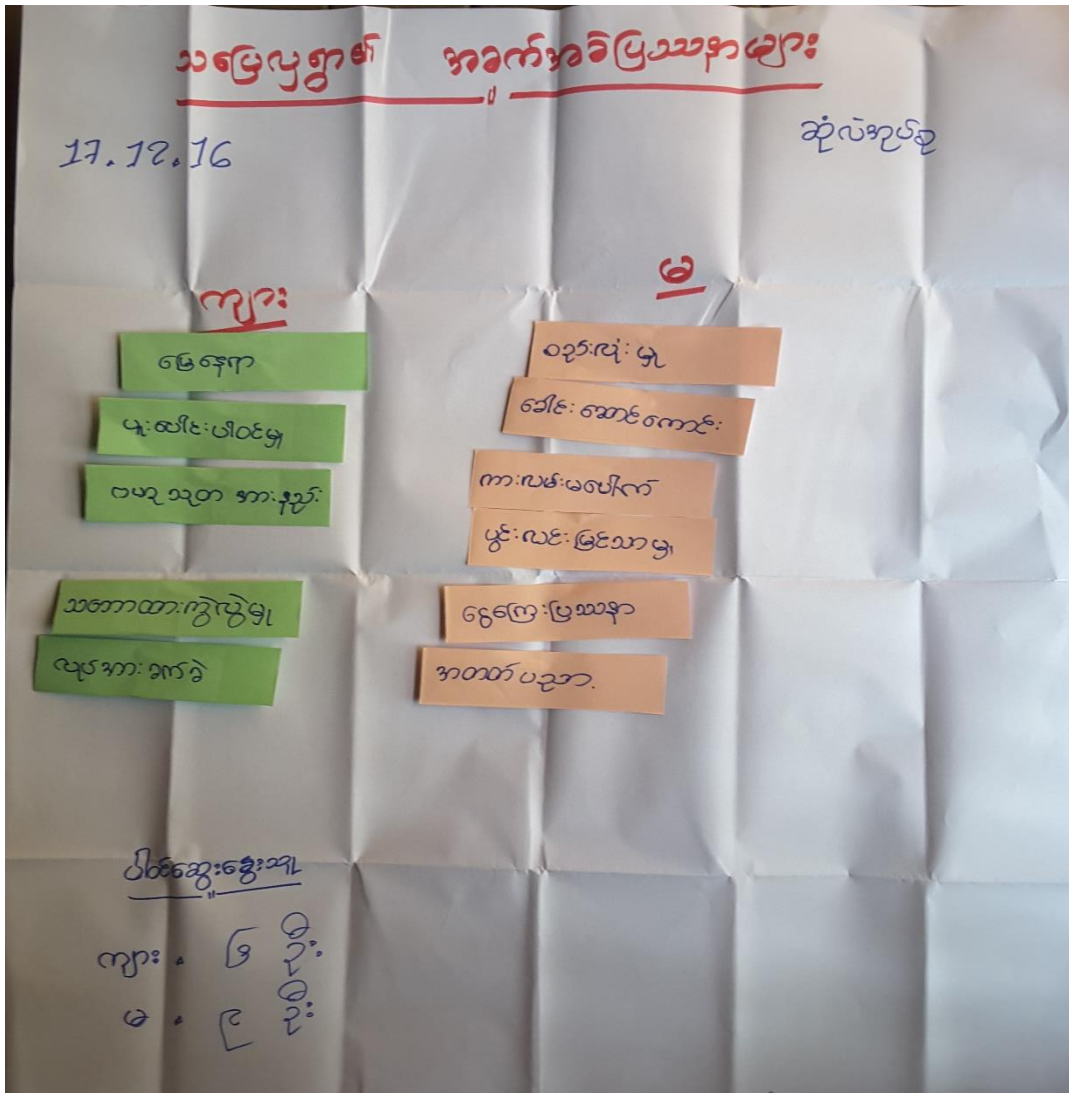 သပြေလှရွာ၏ အခက်အခဲပြဿနာများ
17.12.16
ဆုံလဲအုပ်စု
ကျား
မ
မြေနေရာ
ပူးပေါင်းပါဝင်မှု
ဗဟုသုတ အားနည်း
သဘောထားကွဲလွဲမှု
လုပ်အားခက်ခဲ
စည်းလုံးမှု
ခေါင်းဆောင်ကောင်း
ကားလမ်းမပေါက်
ပွင့်လင်းမြင်သာမှု
ငွေကြေးပြဿနာ
အတတ်ပညာ
ပါဝင်ဆွေးနွေးသူ
ကျား . ဦး
မ . ၉ ဦး